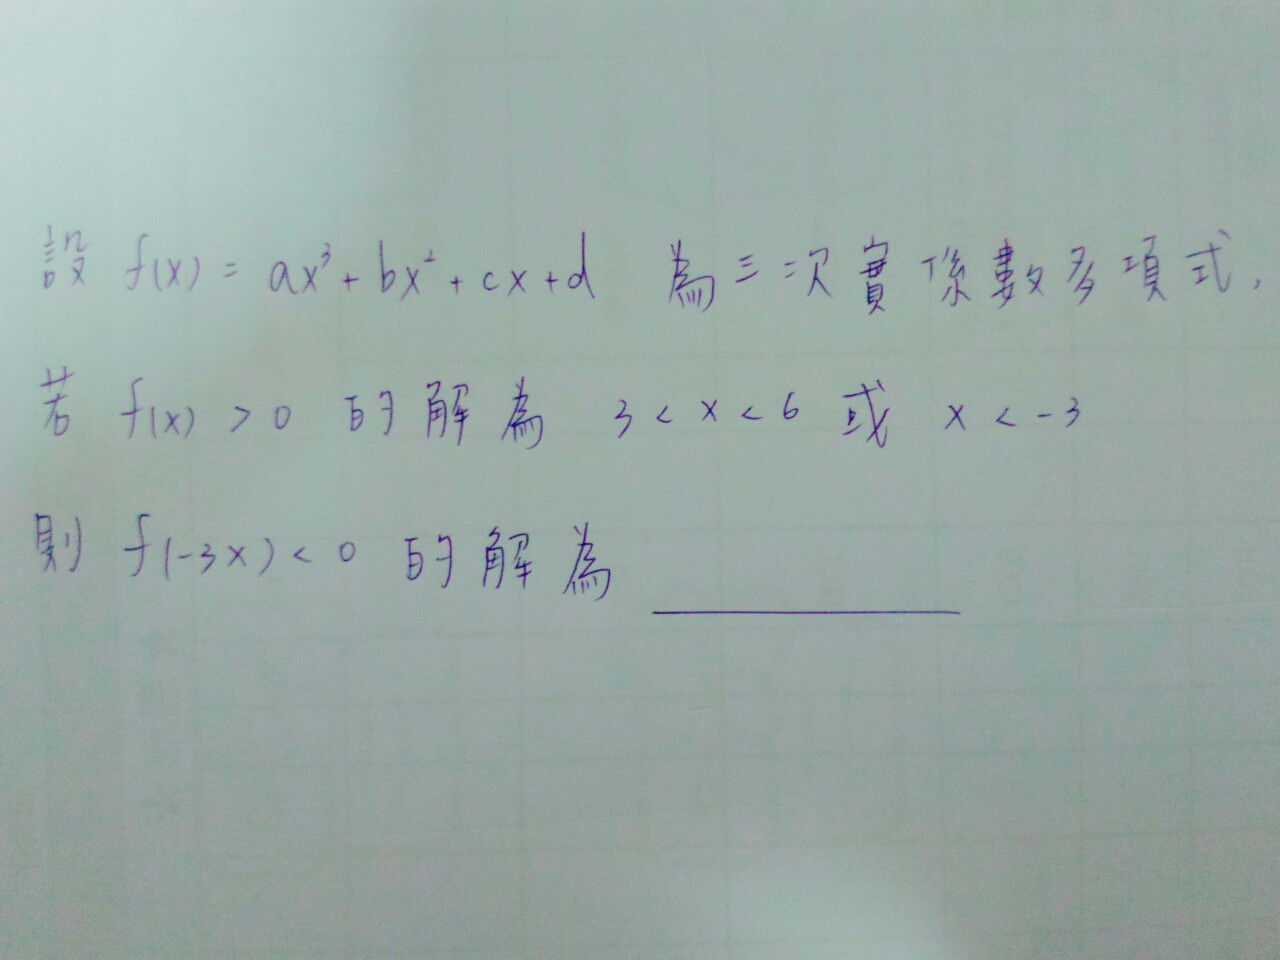 設 f(x) = ax³ + bx² + cx + d 為三次實係數多項式，
若 f(x) > 0 的解為 3 < x < 6 或 x < -3
則 f(-3x) < 0 的解為 ________